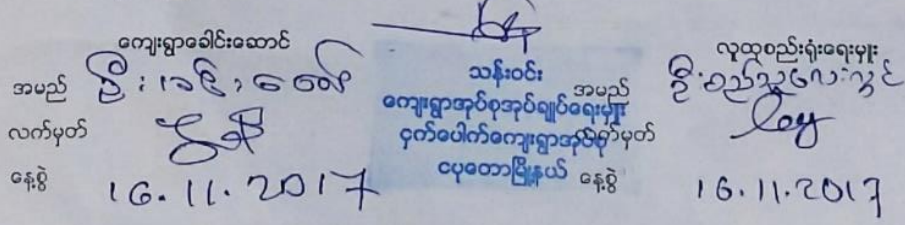 ကျေးရွာခေါင်းဆောင်
အမည် ဦး
လက်မှတ်
နေ့စွဲ 16.11.2017
သန်းဝင်း
ကျေးရွာအုပ်စုအုပ်ချုပ်ရေးမှူး
ငှက်ပေါက်ကျေးရွာအုပ်စု
ငပုတောမြို့နယ်
လူထုစည်းရုံးရေးမှူး
အမည် ဦးစည်သူလေးလွင်
လက်မှတ်
နေ့စွဲ 16.11.2017